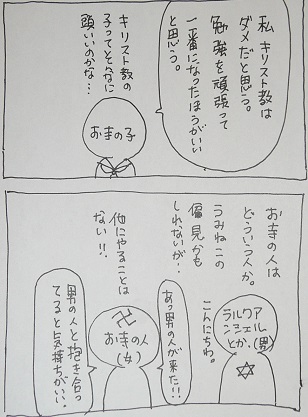 私 キリスト教は
ダメだと思う。
勉強を頑張って
一番になったほうがいい
と思う。
キリスト教の
子ってそんなに
頭いいのかな…
お寺の子
お寺の人は
どういう人か。
うみねこの
偏見かも
しれないが…
他にやることは
ない!!.
ラルクアル
とか。(男)
こんにちわ。
あっ男の人が来た!!
卍
お寺の人
(女)
男の人と抱き合っ
てると気持ちがいい。